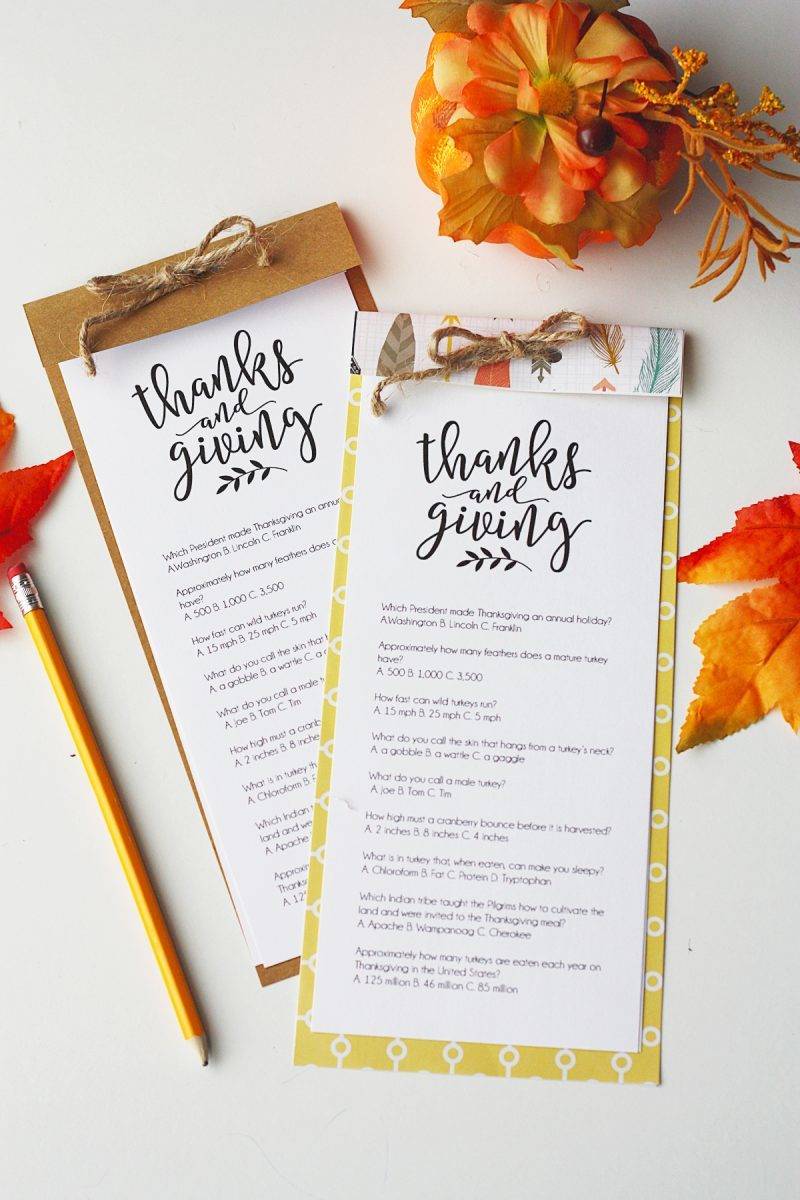 thanks
and
giving
Which President made Thanksgiving an annu
A.Washington B. Lincoln C. Franklin
Approximately how many feathers does a
have?
A. 500 B. 1,000 C. 3,500
How fast can wild turkeys run?
A. 15 mph B. 25 mph C. 5 mph
What do you call the skin that h
A. a gobble B. a wattle C. a g
What do you call a male t
A. Joe B. Tom C. Tim
How high must a cranb
A. 2 inches B. 8 inches
What is in turkey th
A. Chloroform B. Fa
Which Indian t
land and we
A. Apache
Approxi
Thanks
A. 12
thanks
and
giving
Which President made Thanksgiving an annual holiday?
A.Washington B. Lincoln C. Franklin
Approximately how many feathers does a mature turkey
have?
A. 500 B. 1,000 C. 3,500
How fast can wild turkeys run?
A. 15 mph B. 25 mph C. 5 mph
What do you call the skin that hangs from a turkey's neck?
A. a gobble B. a wattle C. a gaggle
What do you call a male turkey?
A. Joe B. Tom C. Tim
How high must a cranberry bounce before it is harvested?
A. 2 inches B. 8 inches C. 4 inches
What is in turkey that, when eaten, can make you sleepy?
A. Chloroform B. Fat C. Protein D. Tryptophan
Which Indian tribe taught the Pilgrims how to cultivate the
land and were invited to the Thanksgiving meal?
A. Apache B. Wampanoag C. Cherokee
Approximately how many turkeys are eaten each year on
Thanksgiving in the United States?
A. 125 million B. 46 million C. 85 million